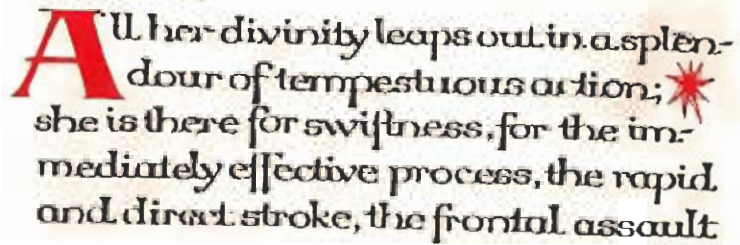 All her divinity leaps out in a splen-
dour of tempestuous action;
she is there for swiftness, for the im-
mediately effective process, the rapid
and direct stroke, the frontal assault